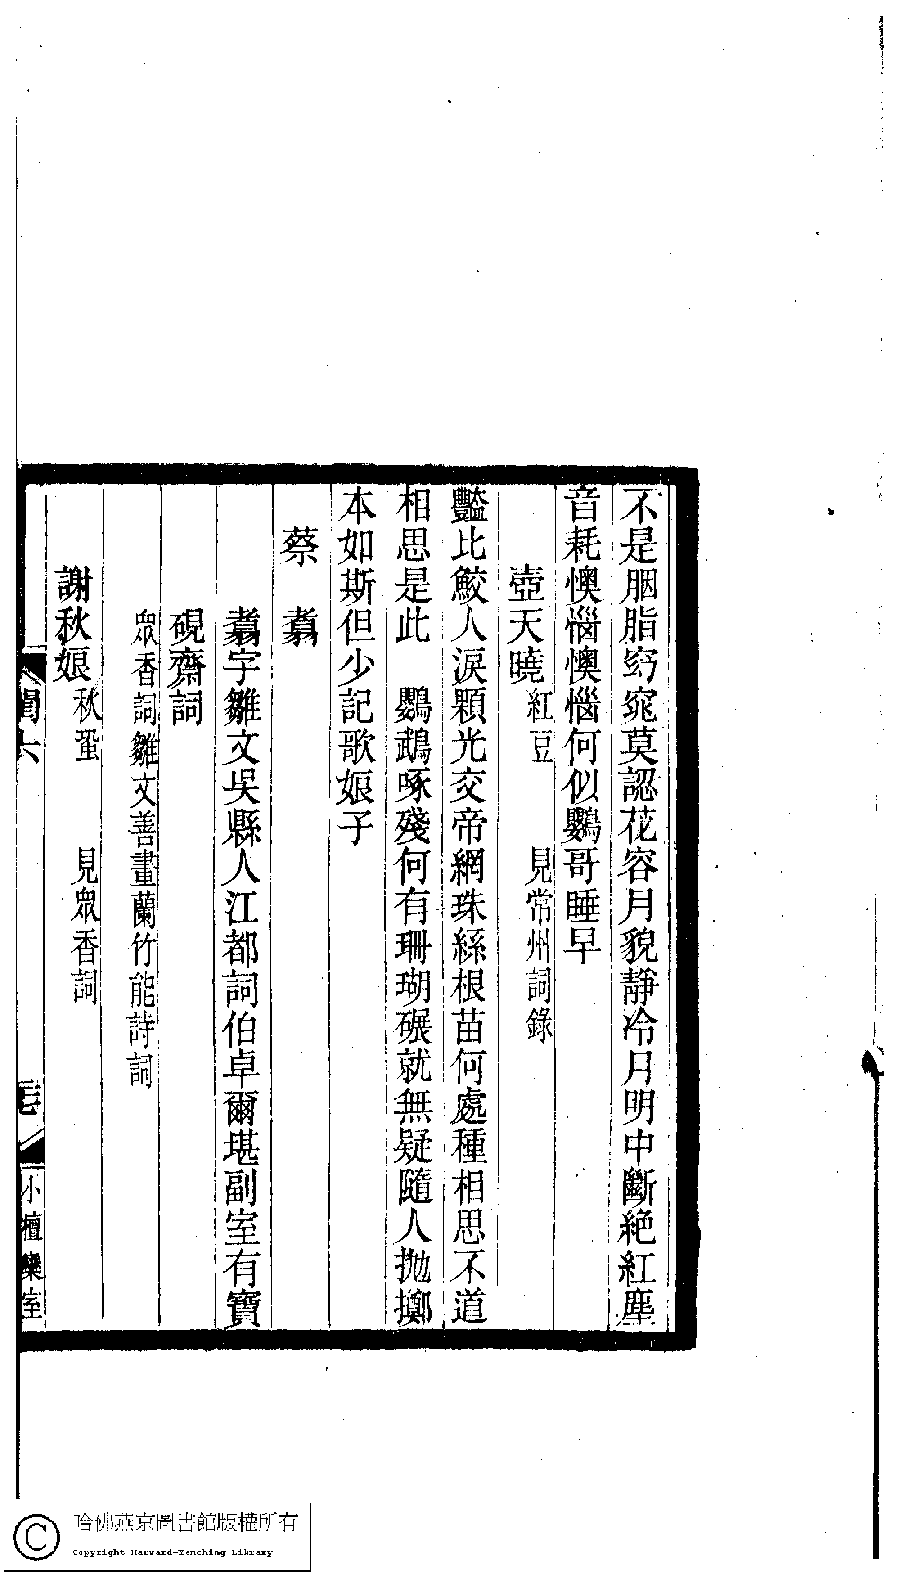 不是胭脂窈窕莫認花容月貌靜冷月明中斷絶紅塵
音耗懊惱懊惱何似鸚哥睡早
壺天曉 紅豆 見常州詞錄
豔比鮫人淚顆光交帝網珠絲根苗何處種相思不道
相思是此 鸚鵡啄殘何有珊瑚碾就無疑隨人抛擲
本如斯但少記歌娘子
蔡 翥
翥字雛文吳縣人江都詞伯卓爾堪副室有寶
硯齋詞
眾香詞雛文善畫蘭竹能詩詞
謝秋娘 秋蛩 見眾香詞
閨六
小檀欒室
哈佛燕京圖書館版權所有
Copyright Harvard-Yenching Library